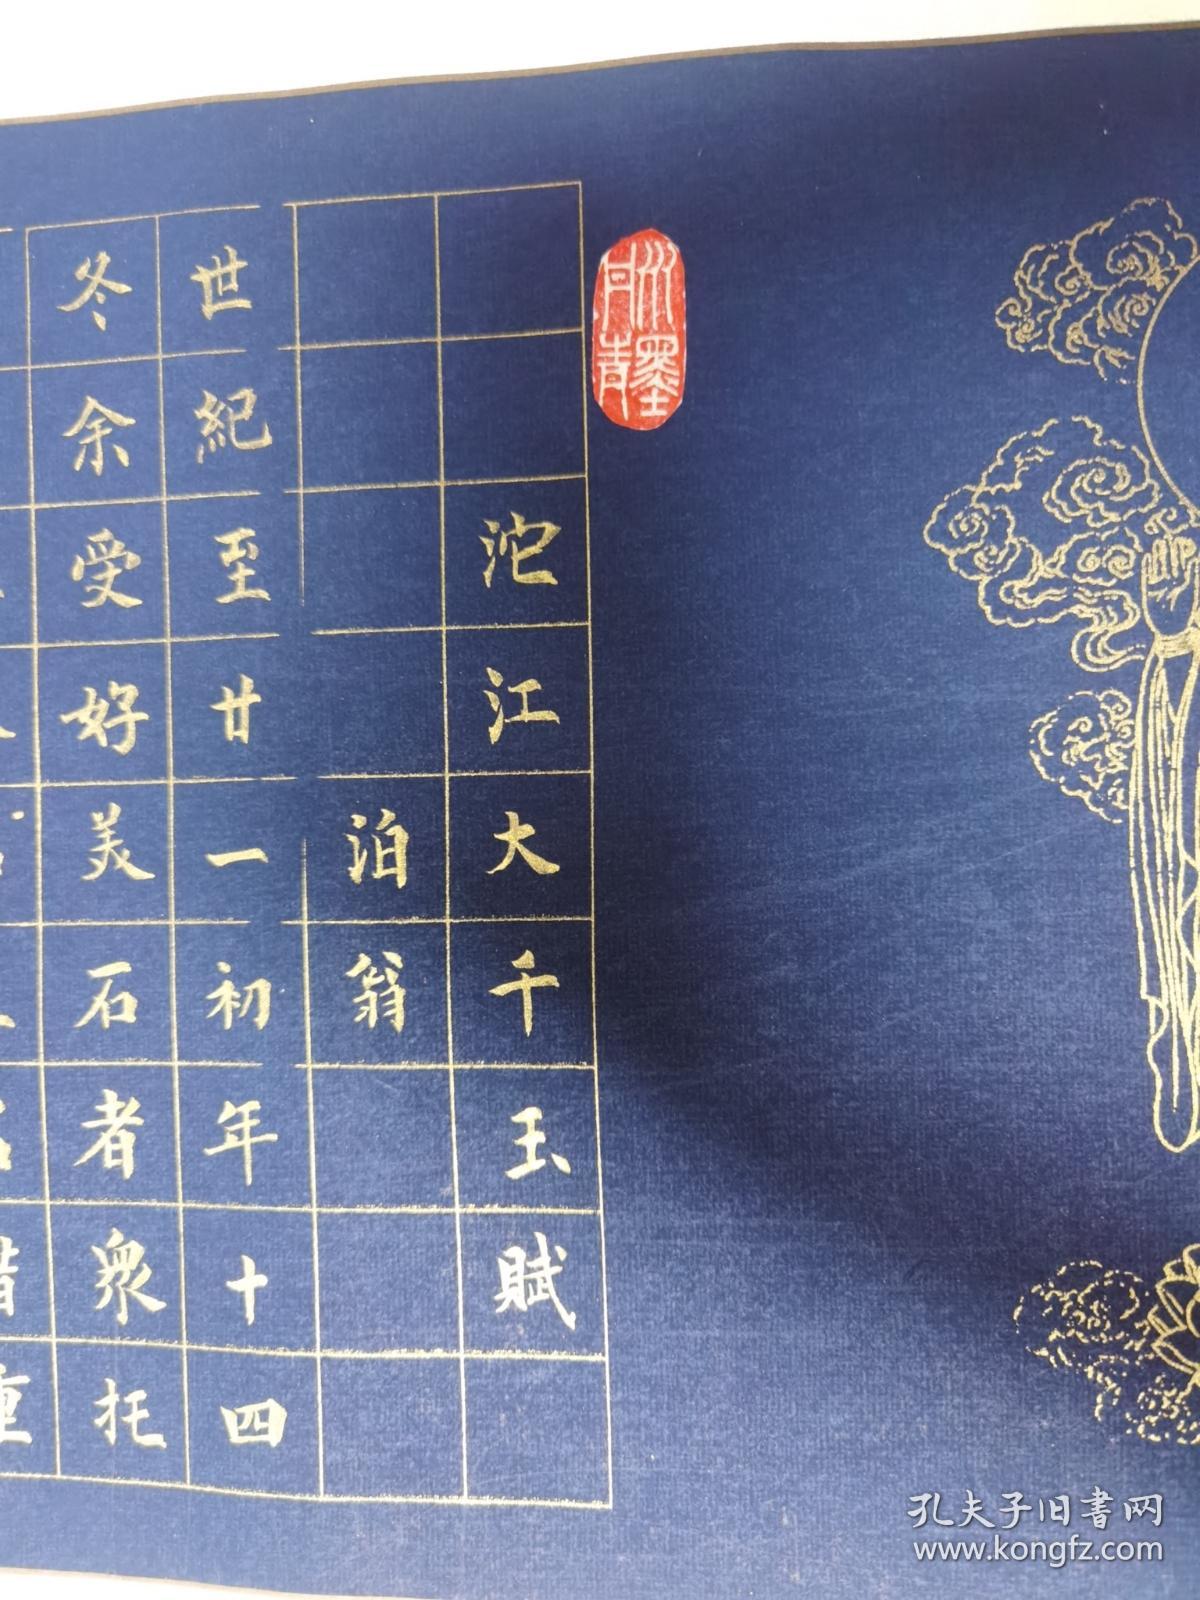 水墨
丹青
沱江大千玉賦
泊翁
世紀至廿一初年十四
冬余受好美石者衆托
孔夫子旧书网
www.kongfz.com